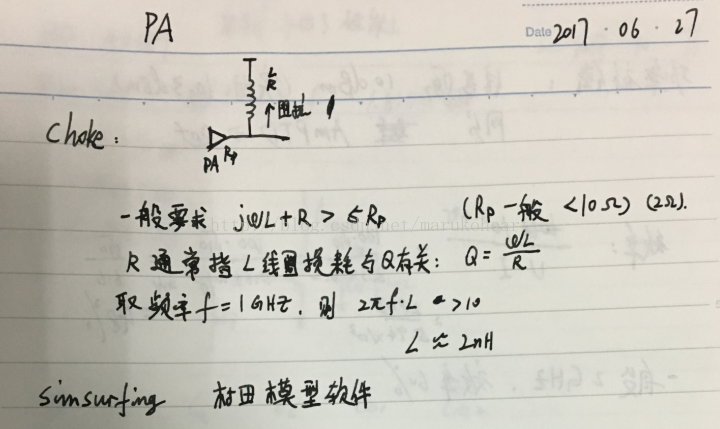 PA
Date 2017.06.27
L
R
阻抗
Choke:
PA Rp
一般要求 jωL+R > 5Rp (Rp一般<10Ω) (2Ω).
R通常指L线圈损耗与Q有关: Q = ωL/R
取频率f=1GHz, 则 2πf·L >10
L≈2nH
Simsurfing 村田模型软件